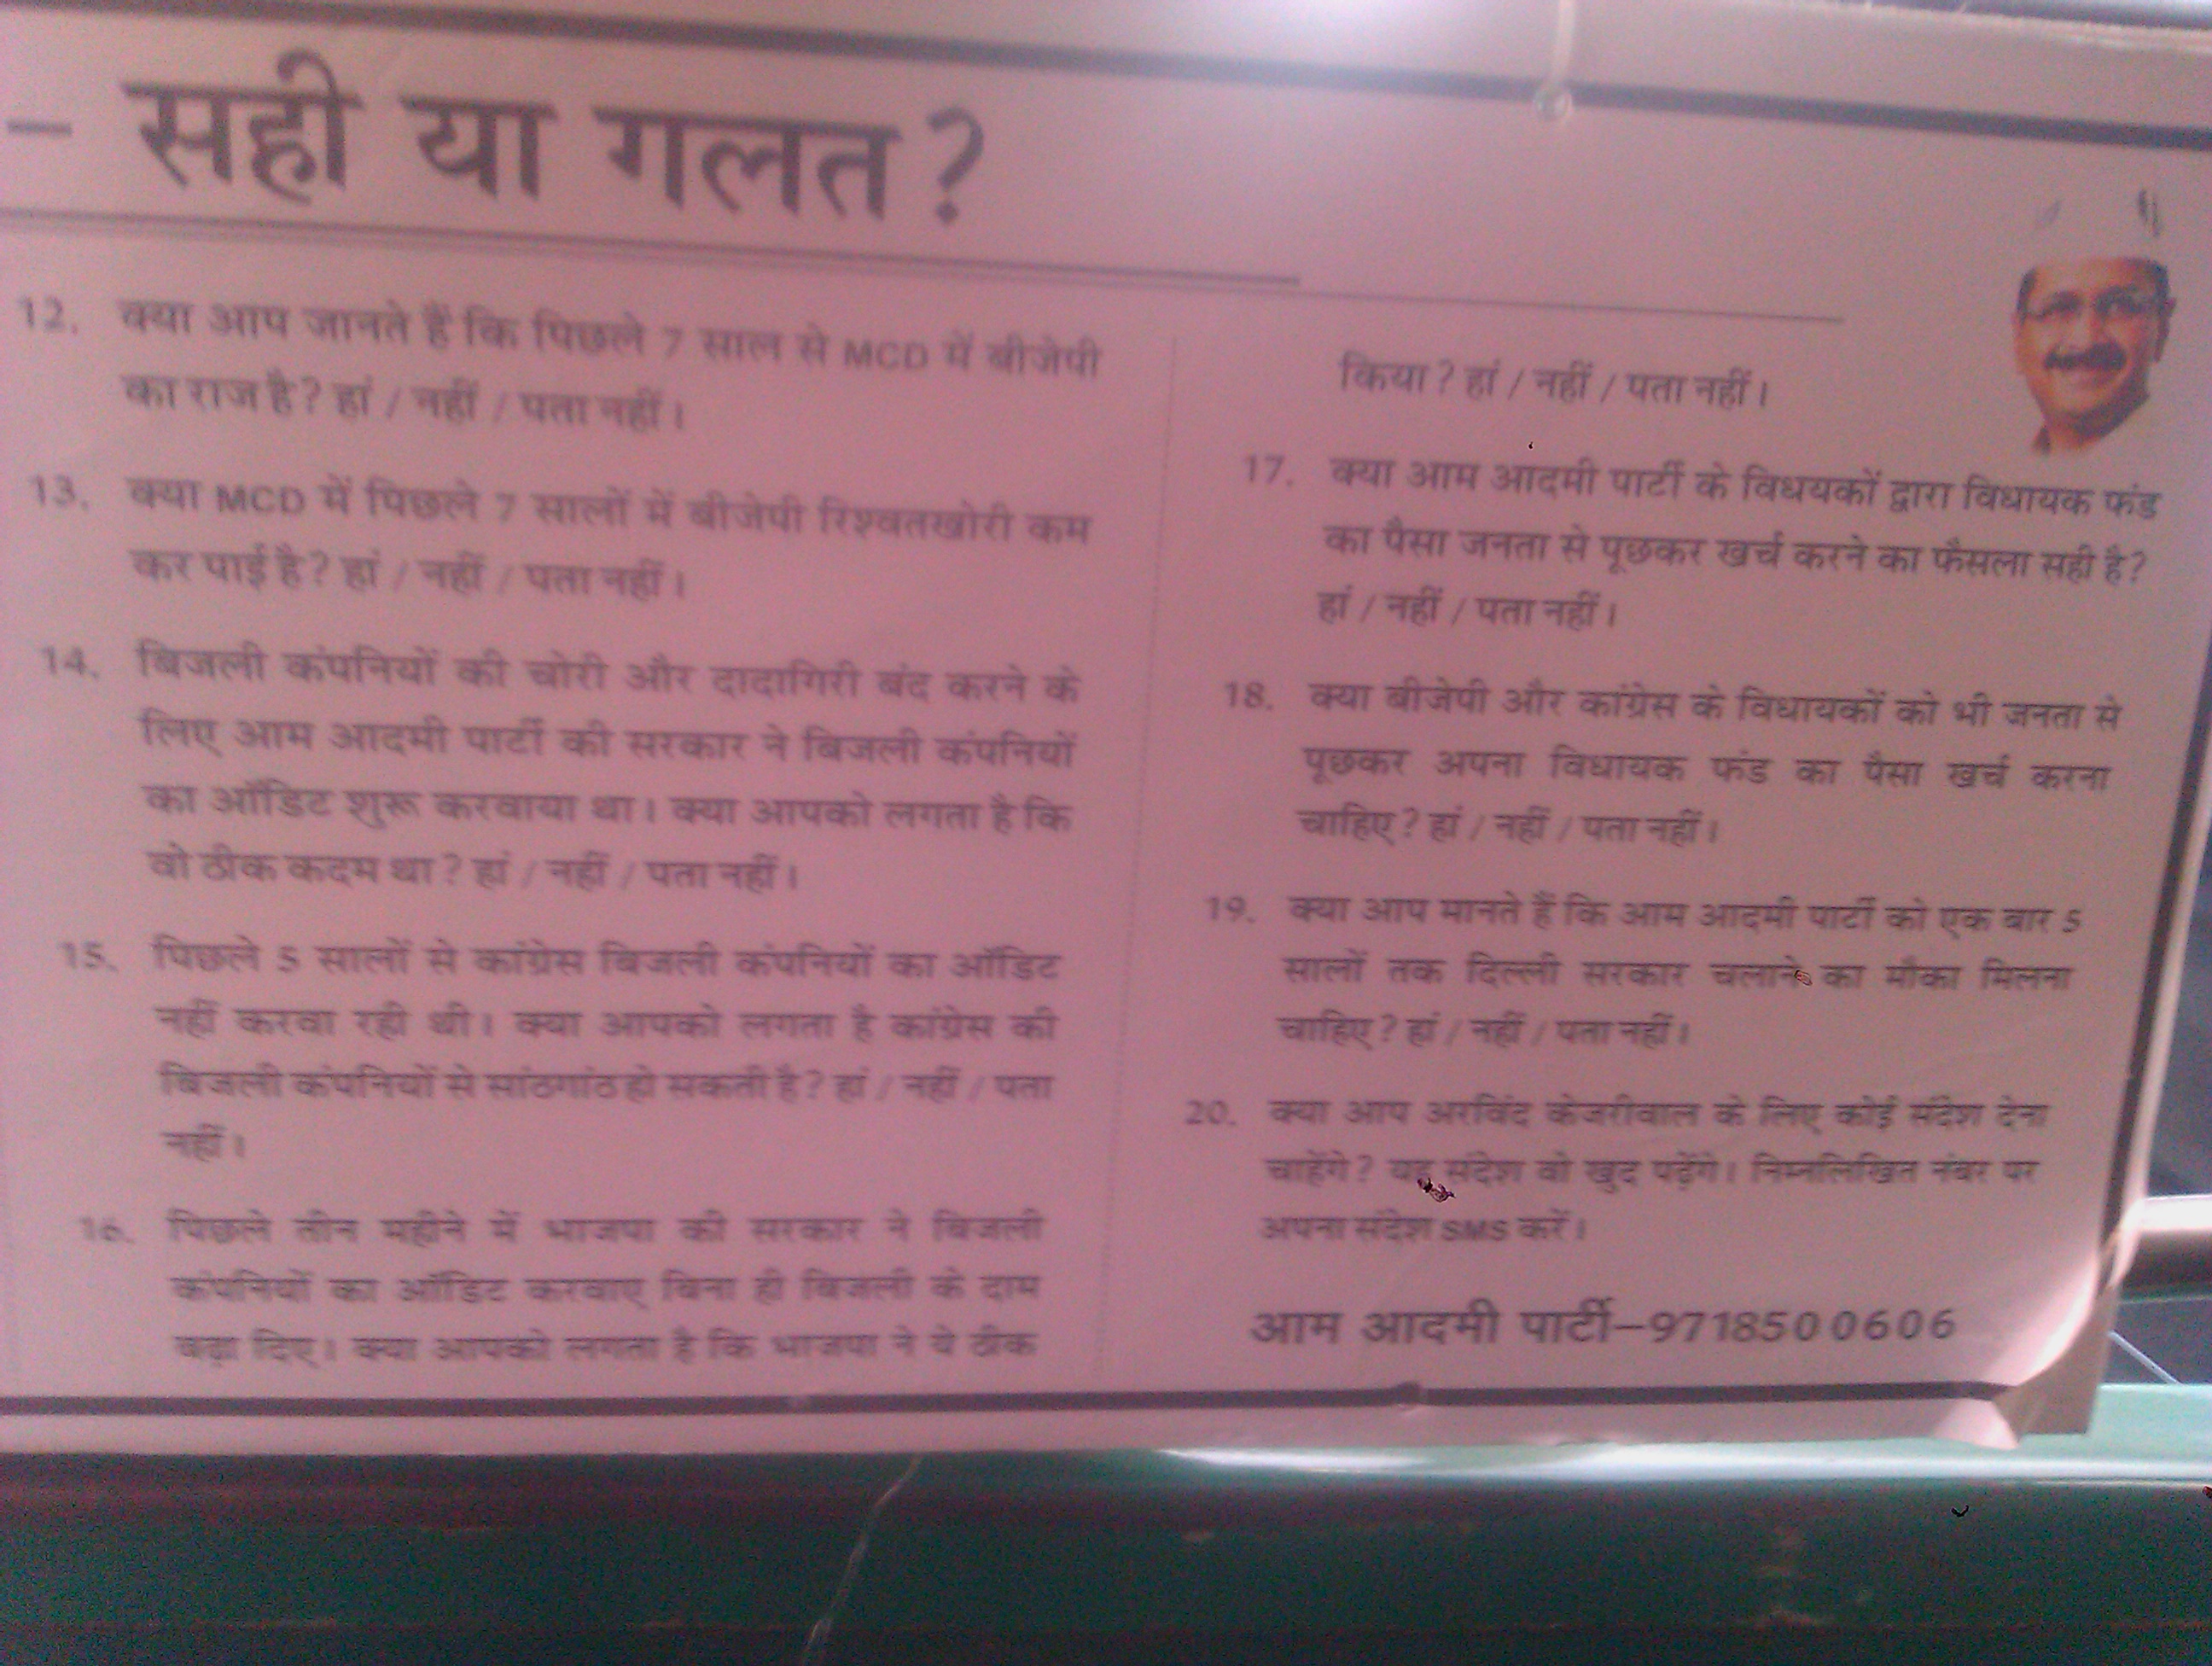 – सही या गलत?
12. क्या आप जानते हैं कि पिछले 7 साल से MCD में बीजेपी
का राज है? हां / नहीं / पता नहीं।
13. क्या MCD में पिछले 7 सालों में बीजेपी रिश्वतखोरी कम
कर पाई है? हां / नहीं / पता नहीं।
14. बिजली कंपनियों की चोरी और दादागिरी बंद करने के
लिए आम आदमी पार्टी की सरकार ने बिजली कंपनियों
का ऑडिट शुरू करवाया था। क्या आपको लगता है कि
वो ठीक कदम था? हां / नहीं / पता नहीं।
15. पिछले 5 सालों से कांग्रेस बिजली कंपनियों का ऑडिट
नहीं करवा रही थी। क्या आपको लगता है कांग्रेस की
बिजली कंपनियों से सांठगांठ हो सकती है? हां / नहीं / पता
नहीं।
16. पिछले तीन महीने में भाजपा की सरकार ने बिजली
कंपनियों का ऑडिट करवाए बिना ही बिजली के दाम
बढ़ा दिए। क्या आपको लगता है कि भाजपा ने ये ठीक
किया? हां / नहीं / पता नहीं।
17. क्या आम आदमी पार्टी के विधयकों द्वारा विधायक फंड
का पैसा जनता से पूछकर खर्च करने का फैसला सही है?
हां / नहीं / पता नहीं।
18. क्या बीजेपी और कांग्रेस के विधायकों को भी जनता से
पूछकर अपना विधायक फंड का पैसा खर्च करना
चाहिए? हां / नहीं / पता नहीं।
19. क्या आप मानते हैं कि आम आदमी पार्टी को एक बार 5
सालों तक दिल्ली सरकार चलाने का मौका मिलना
चाहिए? हां / नहीं / पता नहीं।
20. क्या आप अरविंद केजरीवाल के लिए कोई संदेश देना
चाहेंगे? यह संदेश वो खुद पढ़ेंगे। निम्नलिखित नंबर पर
अपना संदेश SMS करें।
आम आदमी पार्टी–9718500606